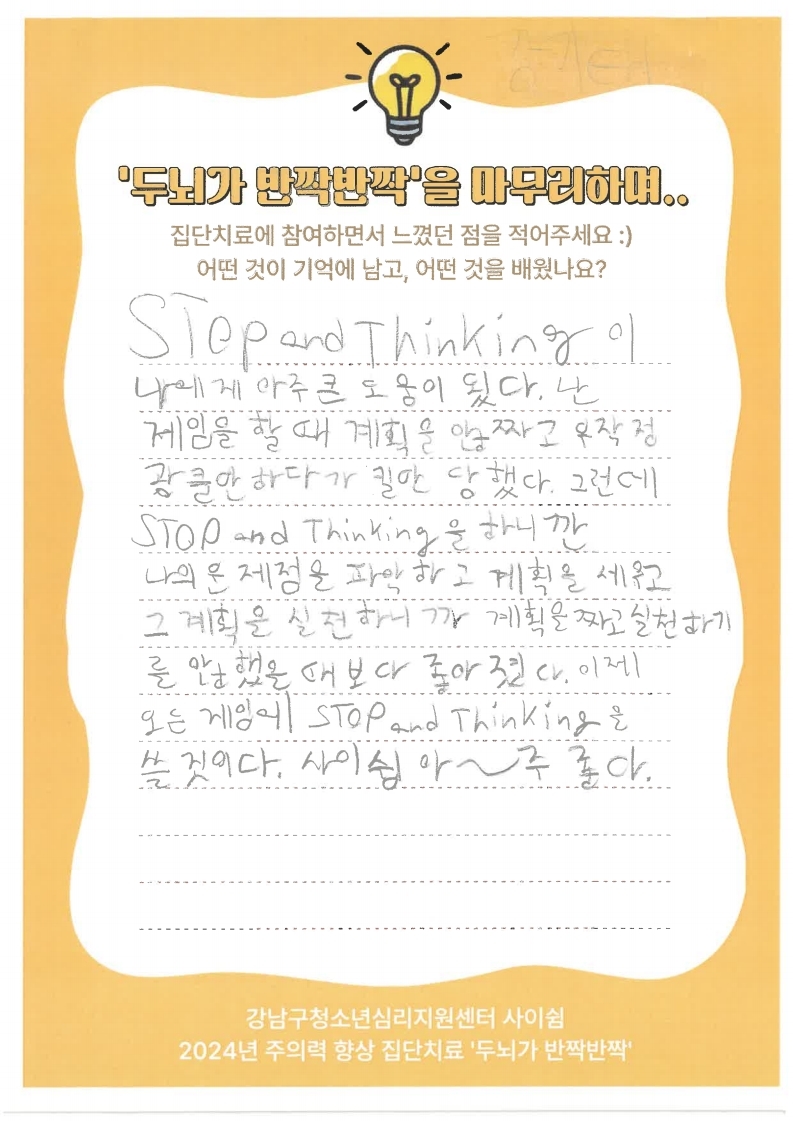 '두뇌가 반짝반짝'을 마무리하며..
집단치료에 참여하면서 느꼈던 점을 적어주세요 :)
어떤 것이 기억에 남고, 어떤 것을 배웠나요?
STOP and Thinking 이
나에게 아주 큰 도움이 됬다. 난
게임을 할 때 계획을 않짜고 무작정
광클만 하다가 킬만 당했다. 그런데
STOP and Thinking을 하니깐
나의 문제점을 파악하고 계획을 세우고
그 계획을 실천하니까 계획을 짜고 실천하기
를 않했을 때보다 좋아졌다. 이제
모든 게임에 STOP and Thinking을
쓸 것이다. 사이쉼 아~주 좋아.
강남구청소년심리지원센터 사이쉼
2024년 주의력 향상 집단치료 '두뇌가 반짝반짝'